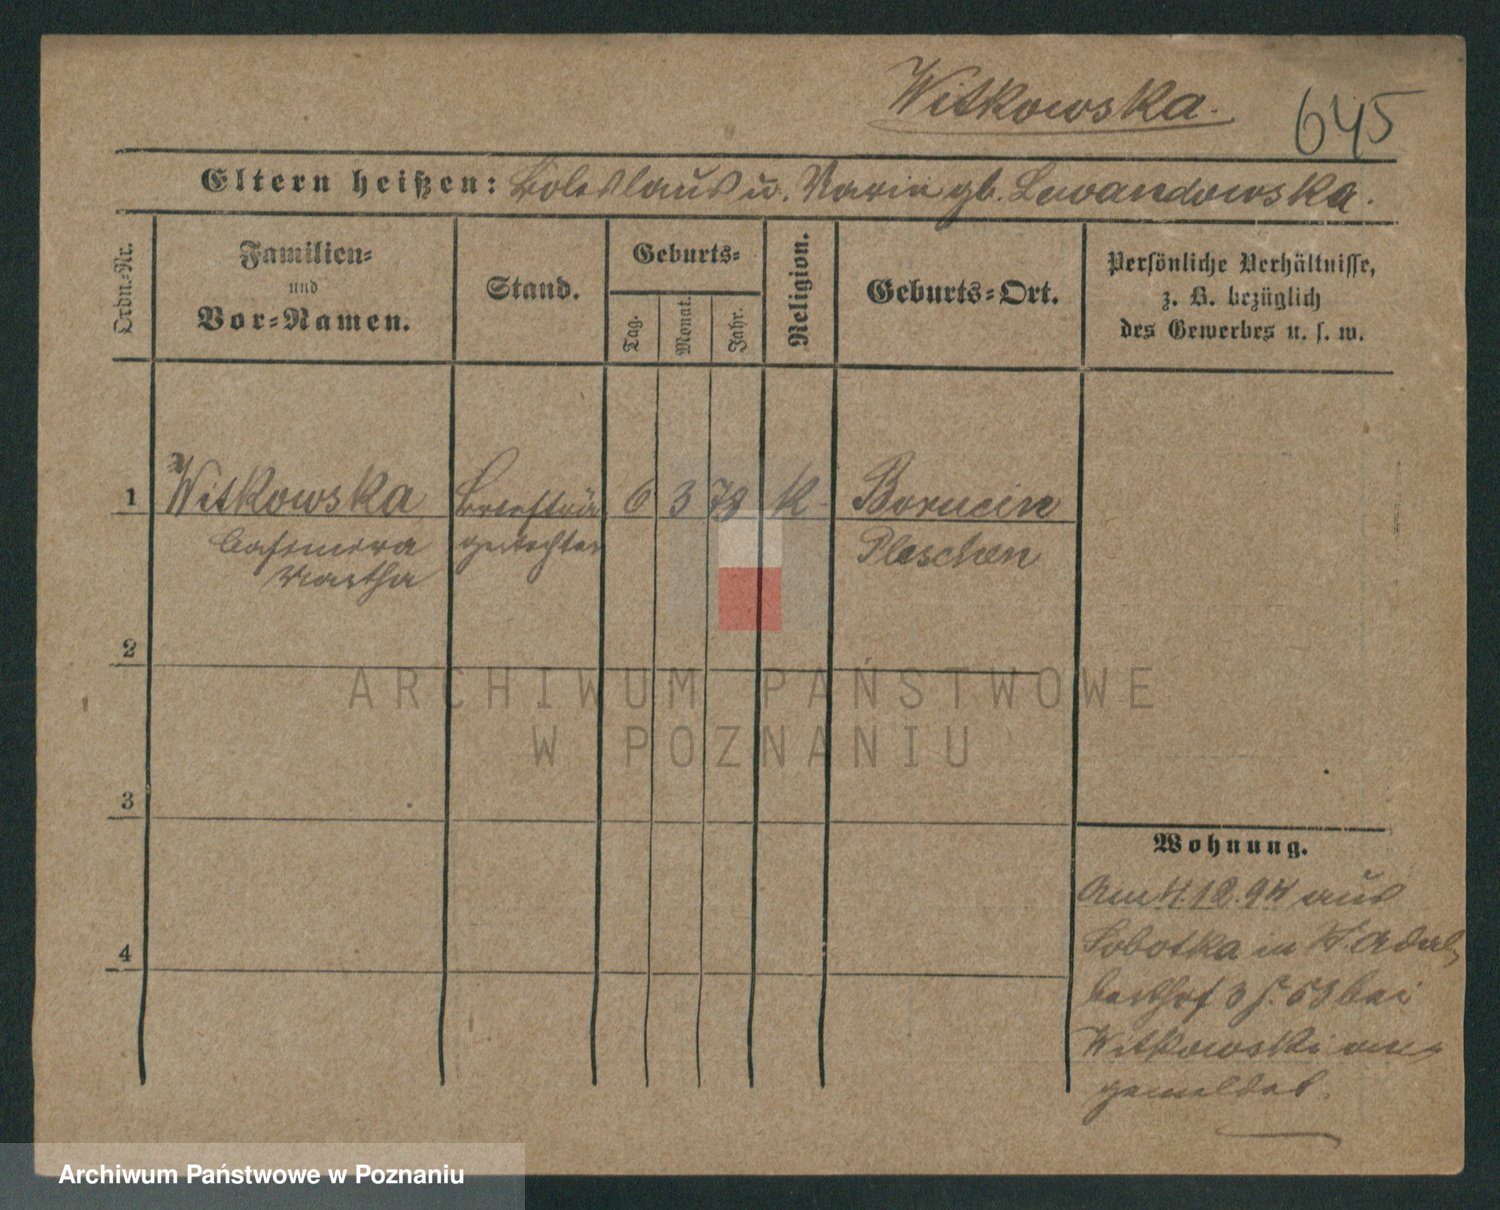 Witkowska.
645
Eltern heißen: Boleslaus u. Marie gb. Lewandowska.
Ordn.-Nr.
Familien-
und
Vor-Namen.
Stand.
Geburts-
Tag.
Monat.
Jahr.
Religion.
Geburts-Ort.
Persönliche Verhältnisse,
z. B. bezüglich
des Gewerbes u. s. w.
1 Witkowska Briefträ 6 3 78 K Borucin
Casimira gertochter Pleschen
Martha
2
3
4
Wohnung.
Am 4.12.94 aus
Sobotka in St. Adal
bertstr 3 bei
Witkowski an-
gemeldet.
ARCHIWUM PAŃSTWOWE
W POZNANIU
Archiwum Państwowe w Poznaniu